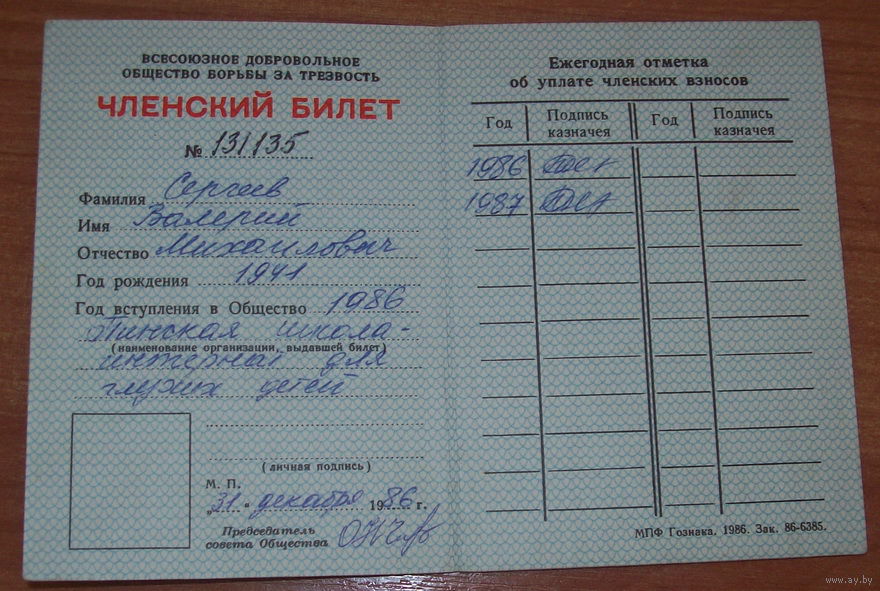 ВСЕСОЮЗНОЕ ДОБРОВОЛЬНОЕ
ОБЩЕСТВО БОРЬБЫ ЗА ТРЕЗВОСТЬ
ЧЛЕНСКИЙ БИЛЕТ
№ 131135
Фамилия Сергеев
Имя Валерий
Отчество Михайлович
Год рождения 1941
Год вступления в Общество 1986
Пинская школа-
(наименование организации, выдавшей билет)
интернат для
глухих детей
(личная подпись)
М. П.
„31“ декабря 1986 г.
Председатель
совета Общества
Ежегодная отметка
об уплате членских взносов
Год Подпись казначея Год Подпись казначея
1986
1987
МПФ Гознака. 1986. Зак. 86-6385.
www.ay.by